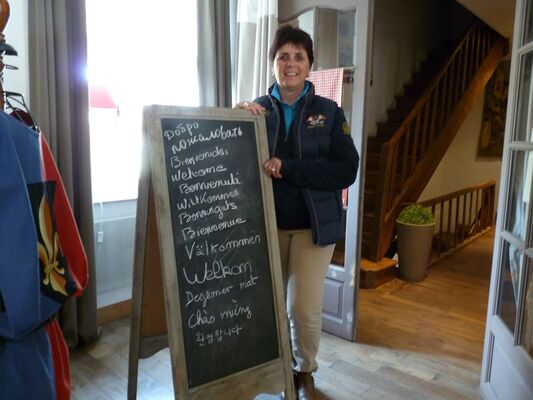 Добро
пожаловать
Bienvenidos
Welcome
Benvenuti
Willkommen
Benvenguts
Bienvenue
Välkommen
Welkom
Degemer mat
Chào mừng
환영합니다